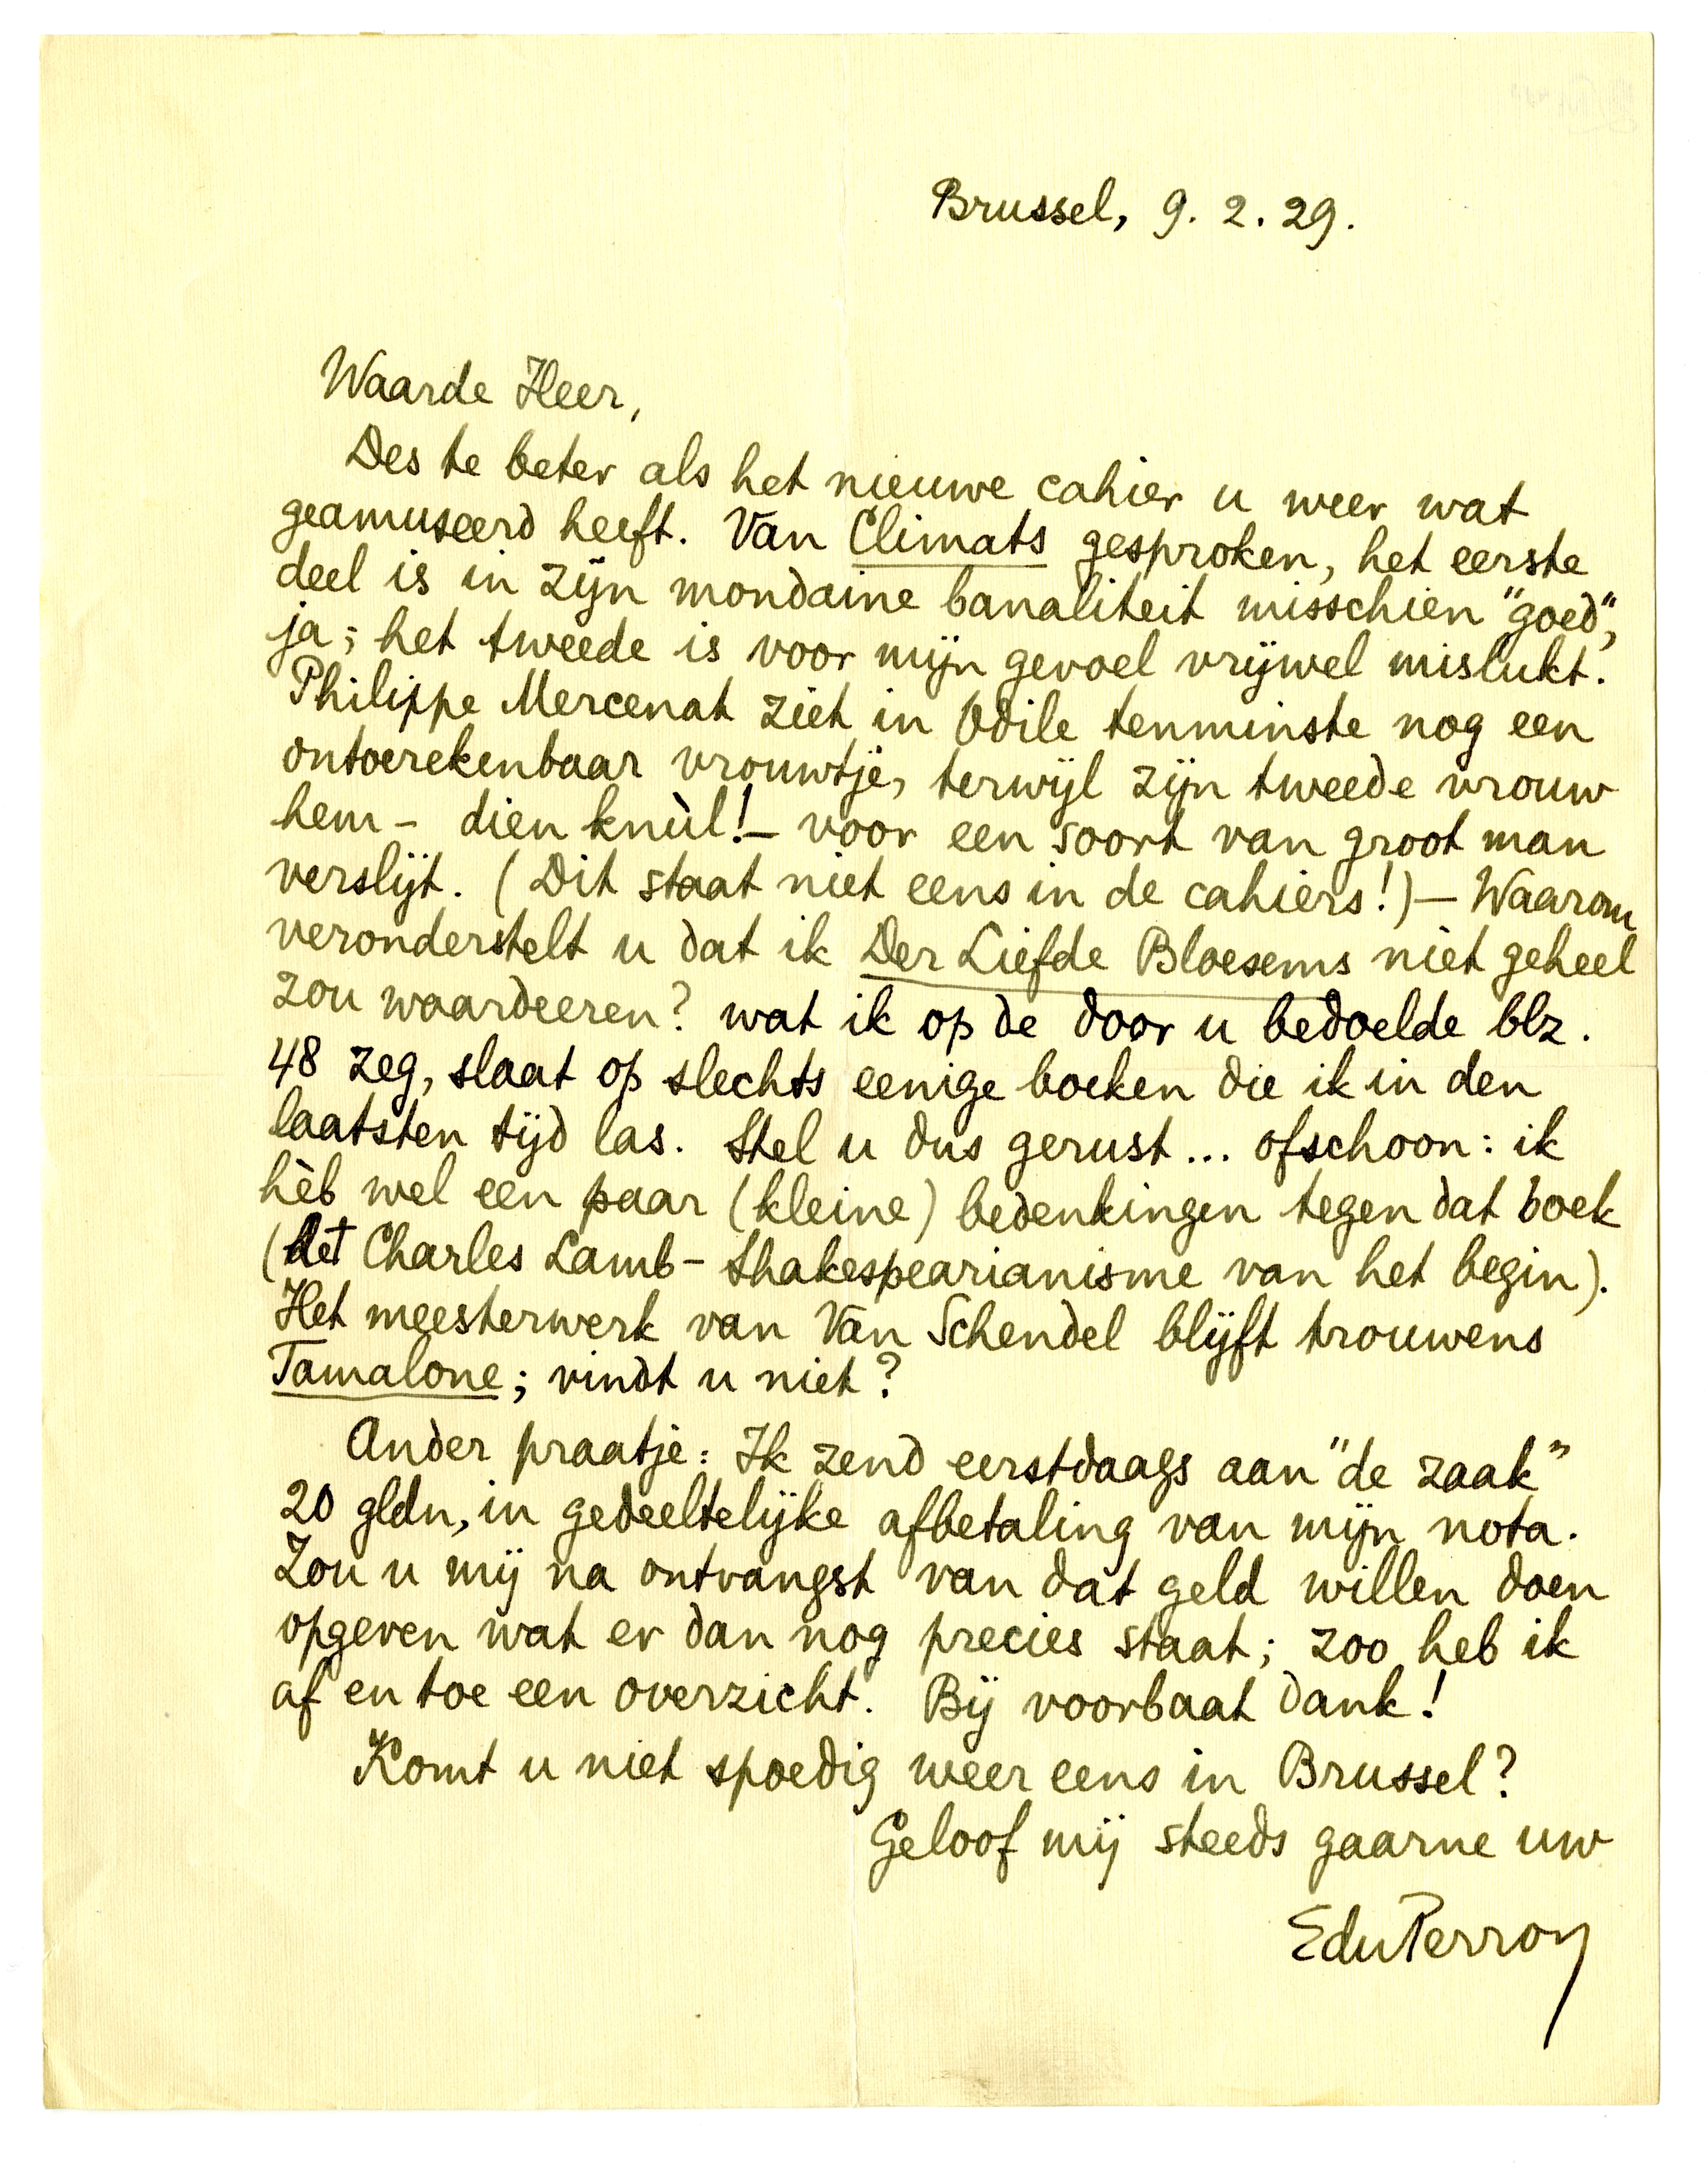 Brussel, 9. 2. 29.
Waarde Heer,
Des te beter als het nieuwe cahier u weer wat
geamuseerd heeft. Van Climats gesproken, het eerste
deel is in zijn mondaine banaliteit misschien "goed",
ja; het tweede is voor mijn gevoel vrijwel mislukt.
Philippe Mercenat ziet in Odile tenminste nog een
ontoerekenbaar vrouwtje, terwijl zijn tweede vrouw
hem - dien knùl! - voor een soort van groot man
verslijt. (Dit staat niet eens in de cahiers!) — Waarom
veronderstelt u dat ik Der Liefde Bloesems niet geheel
zou waardeeren? wat ik op de door u bedoelde blz.
48 zeg, slaat op slechts eenige boeken die ik in den
laatsten tijd las. Stel u dus gerust... ofschoon: ik
hèb wel een paar (kleine) bedenkingen tegen dat boek
(het Charles Lamb-Shakespearianisme van het begin).
Het meesterwerk van Van Schendel blijft trouwens
Tamalone; vindt u niet?
Ander praatje: Ik zend eerstdaags aan "de zaak"
20 gldn, in gedeeltelijke afbetaling van mijn nota.
Zou u mij na ontvangst van dat geld willen doen
opgeven wat er dan nog precies staat; zoo heb ik
af en toe een overzicht. Bij voorbaat dank!
Komt u niet spoedig weer eens in Brussel?
Geloof mij steeds gaarne uw
EduPerron